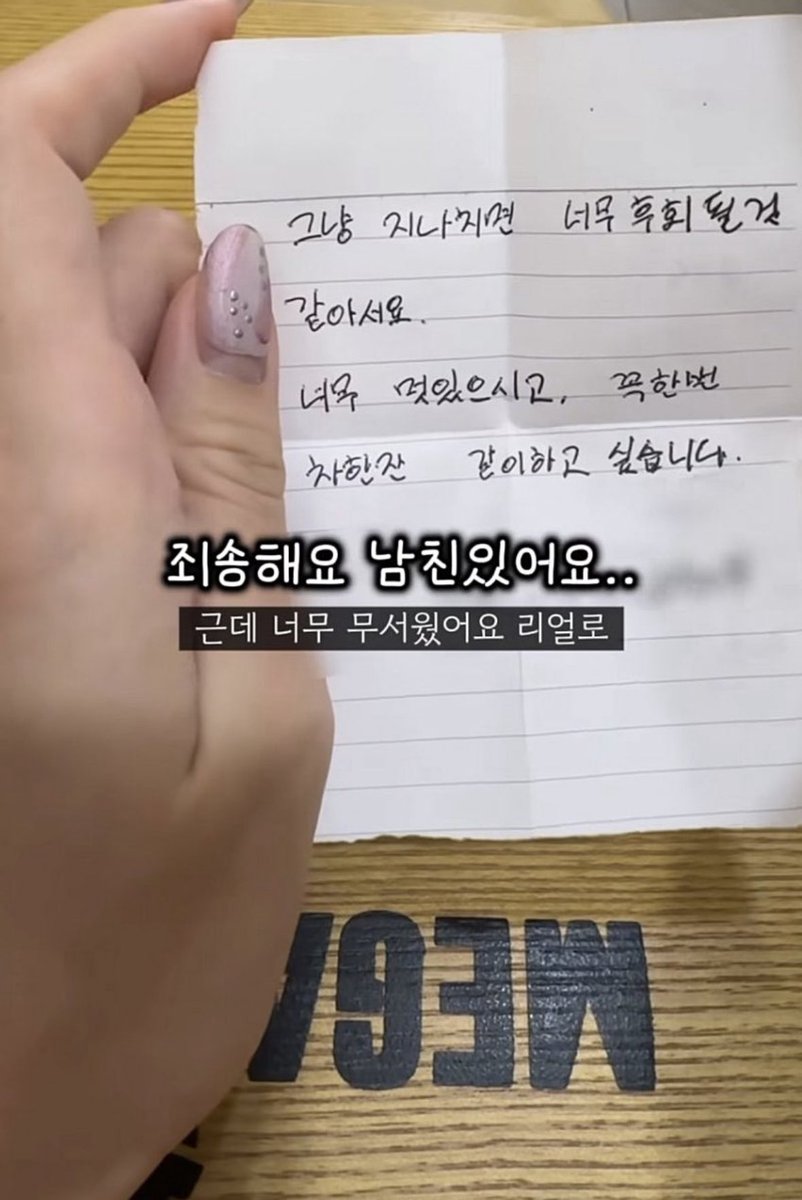 그냥 지나치면 너무 후회 될 것
같아서요.
너무 멋있으시고, 꼭한번
차한잔 같이하고 싶습니다.
죄송해요 남친있어요..
근데 너무 무서웠어요 리얼로
MEGA